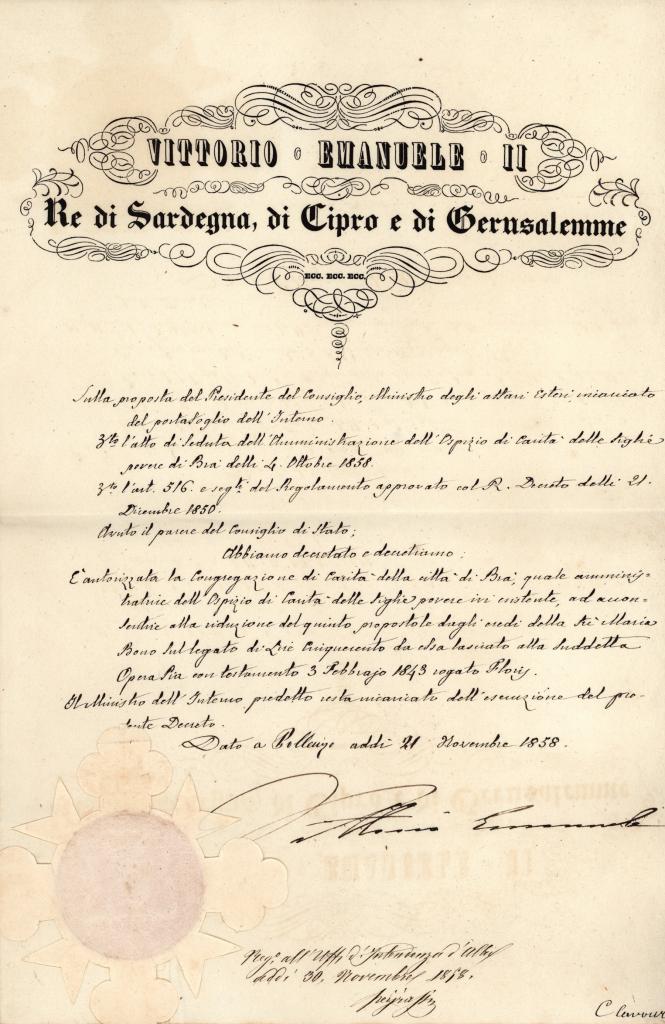 VITTORIO EMANUELE II
Re di Sardegna, di Cipro e di Gerusalemme
ECC. ECC. ECC.
Sulla proposta del Presidente del Consiglio, Ministro degli affari Esteri, incaricato
del portafoglio dell'Interno.
l'atto di Seduta dell'Amministrazione dell'Ospizio di Carità delle figlie
povere di Bra delli 4. Ottobre 1858.
l'art. 516. e segti del Regolamento approvato col R. Decreto delli 21.
Dicembre 1850.
Avuto il parere del Consiglio di Stato;
Abbiamo decretato e decretiamo:
È autorizzata la Congregazione di Carità della città di Bra, quale amminis-
tratrice dell'Ospizio di Carità delle figlie povere ivi esistente, ad accon-
sentire alla riduzione del quinto proposta dagli eredi della Maria
Bono sul legato di Lire Cinquecento da essa lasciato alla suddetta
Opera Pia con testamento 3 Febbrajo 1843 rogato Floris.
Il Ministro dell'Interno predetto resta incaricato dell'esecuzione del pre-
sente Decreto.
Dato a Pollenzo addì 21 Novembre 1858.
Vittorio Emanuele
Regº. all'Uffº d'Intendenza d'Alba
addì 30. Novembre 1858.
C Cavour